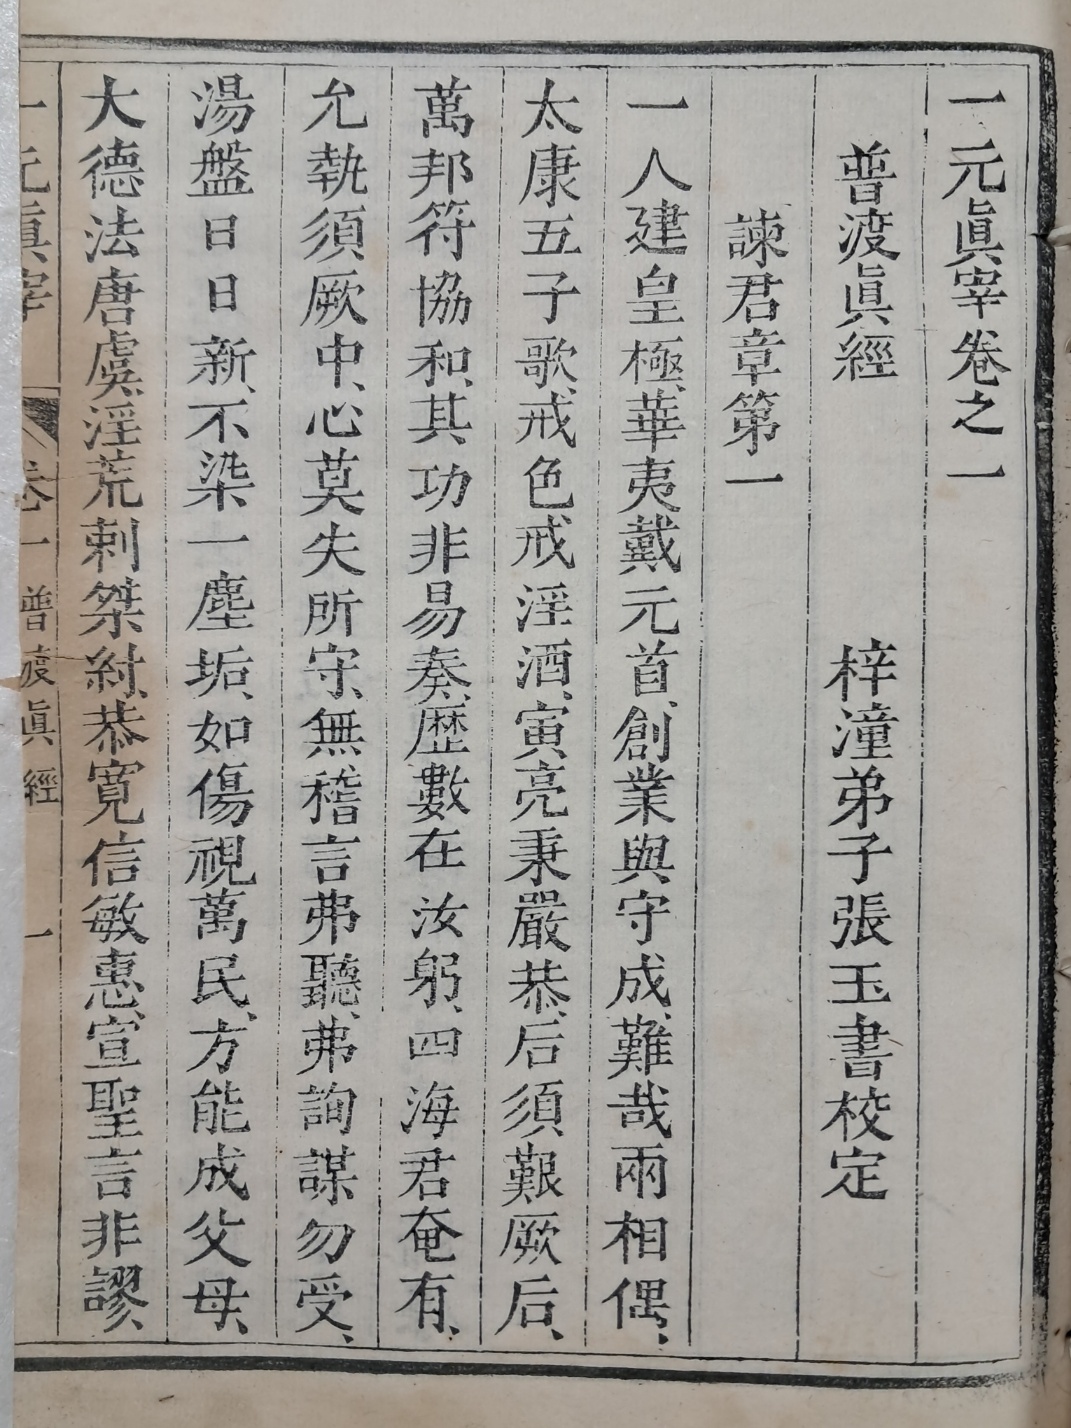 一元眞宰卷之一
普渡眞經 梓潼弟子張玉書校定
諫君章第一
一人建皇極、華夷戴元首、創業與守成、難哉兩相偶、
太康五子歌、戒色戒淫酒、寅亮秉嚴恭、后須艱厥后、
萬邦符協和、其功非易奏、歷數在汝躬、四海君奄有、
允執須厥中、心莫失所守、無稽言弗聽、弗詢謀勿受、
湯盤日日新、不染一塵垢、如傷視萬民、方能成父母、
大德法唐虞、淫荒剌桀紂、恭寬信敏惠、宣聖言非謬、
一元眞宰 卷一 普渡眞經 一